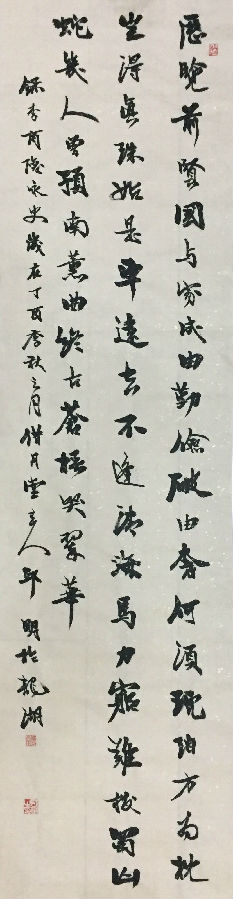 歷覽前賢國与家成由勤儉破由奢何須琥珀方為枕
豈得真珠始是車遠去不逢清海馬力窮難拔蜀山
蛇幾人曾預南薰曲終古蒼梧哭翠華
録李商隐咏史歲在丁酉季秋之月借月堂主人邱明於龍湖